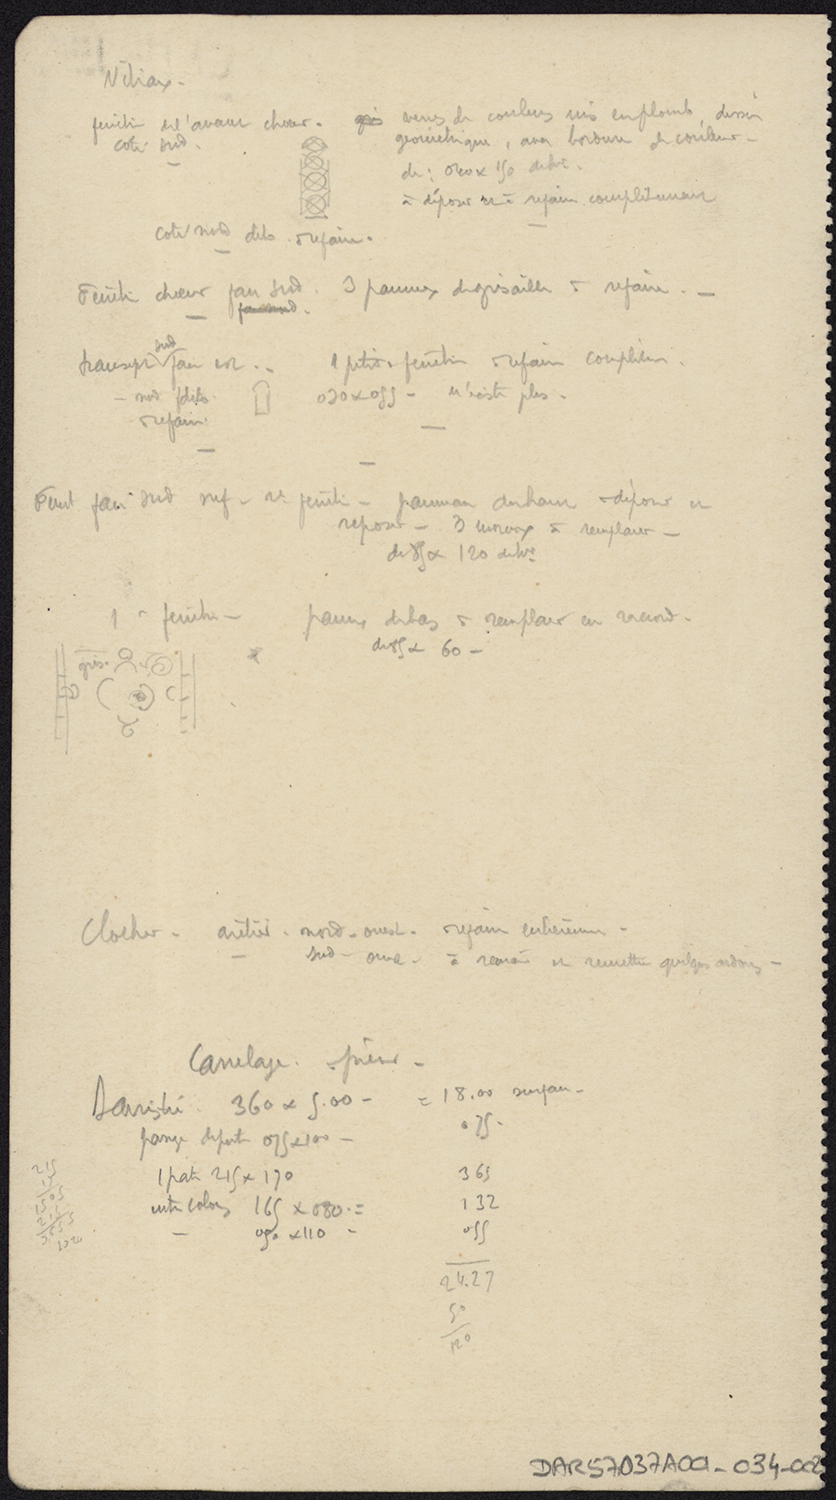 Vitraux -
fenêtre de l'avant choeur - verres de couleurs mis en plomb, dessin
coté sud. géométrique, avec bordure de couleur -
de : 040 x 150 de hr.
à déposer et à refaire complètement
coté nord dito à refaire.
Fenêtre choeur face sud. 3 panneaux de grisailles à refaire. -
face nord.
sud
transept face est . . 1 petite fenêtre à refaire complètem.
- nord dito. 030 x 055 - n'existe plus.
à refaire.
Fenêt face sud nef - 2e fenêtre - panneau du haut à déposer et
reposer - 3 morceaux à remplacer -
de 85 x 120 de hr
1e fenêtre - panneau du bas à remplacer en raccord.
de 85 x 60 -
gris.
Clocher - arêtier - nord-ouest. à refaire entièrement -
sud - ouest - à revoir et remettre quelques ardoises -
Carrelage. pierre -
Sacristie. 360 x 5.00 - = 18.00 surface -
passage de porte 075 x 100 - 075 -
1 part 215 x 170 365
entre colonnes 165 x 080 = 132
- 050 x 110 - 055
24.27
50
120
DARS7D37A001-034-008